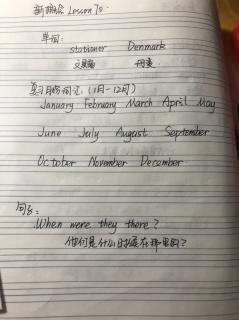 新概念 Lesson 70.
单词:
stationer Denmark
文具商 丹麦
复习月份词汇: (1月-12月)
January February March April May
June July August September
October November December
句子:
When were they there?
他们是什么时候在那里的?